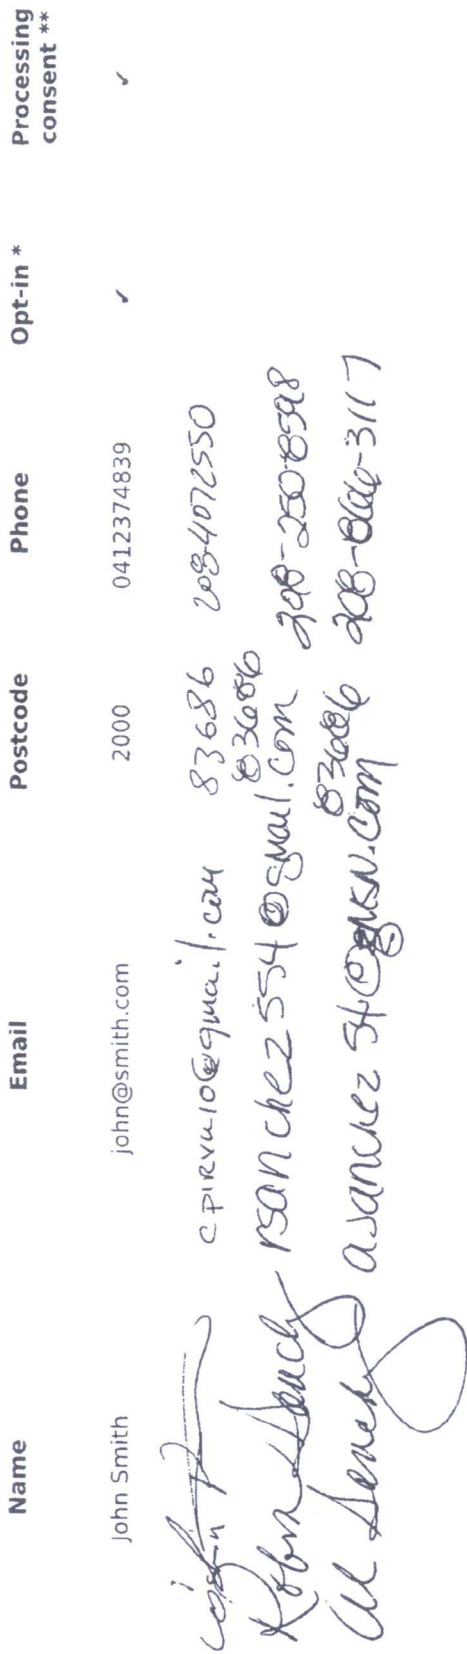 Name Email Postcode Phone Opt-in * Processing consent **
John Smith john@smith.com 2000 0412374839 ✓ ✓
83686 208-4072550
Robin Sanchez rsanchez554@gmail.com 83686 208-250-8598
Al Sanchez asanchez54@msn.com 83686 208-866-3117